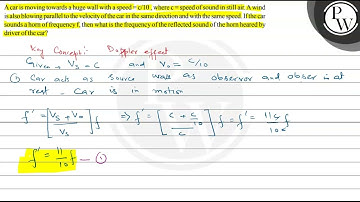 A car is moving towards a huge wall with a speed = c/10 , where c = speed of sound in still air. A wind
is also blowing parallel to the velocity of the car in the same direction and with the same speed. If the car
sounds a horn of frequency f, then what is the frequency of the reflected sound of the horn heared by
driver of the car?
Key Concept: Doppler effect
Given → Vs = C and Vo = C/10
① Car acts as source wall as observer and obser is at
rest - Car is in motion
f' = [Vs + Vo / Vs] f ⇒ f' = [C + C/10 / C] f = f' = 11C/10C f
f' = 11/10 f — ①